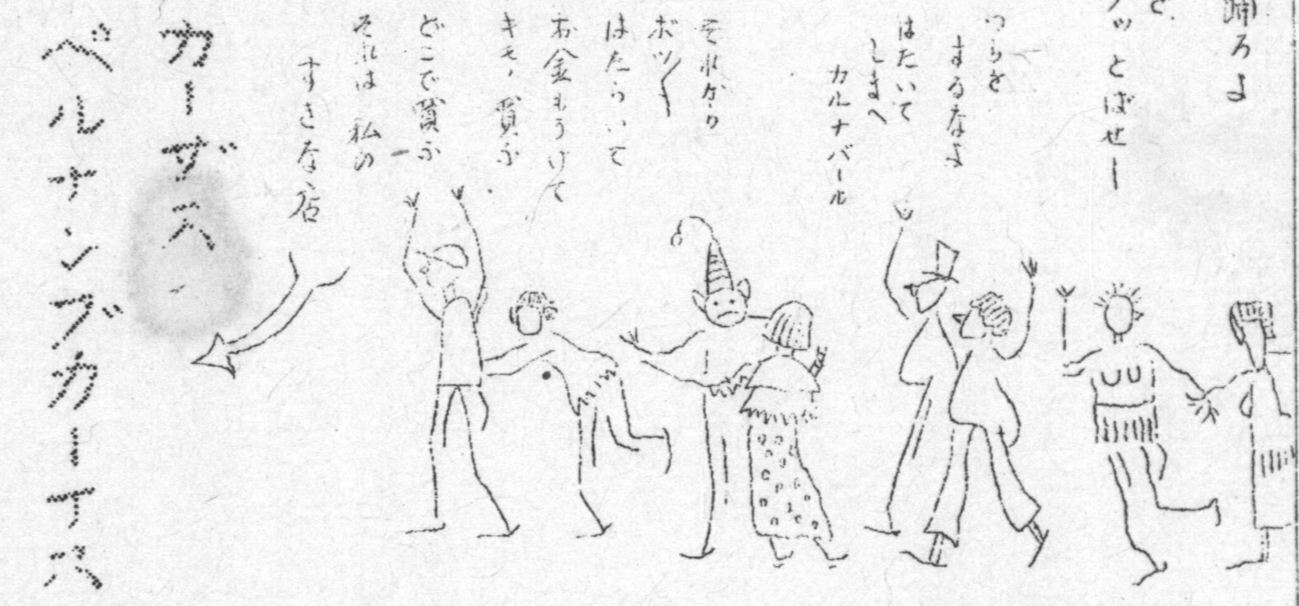 踊ろよ
ツとばせー
つらを
するなよ
はたいて
しまへ
カルナバール
それから
ボツ〱
はたらいて
お金もうけて
キモノ買ふ
どこで買ふ
それは 私の
すきな店
カーザス
ペルナンブカーナス